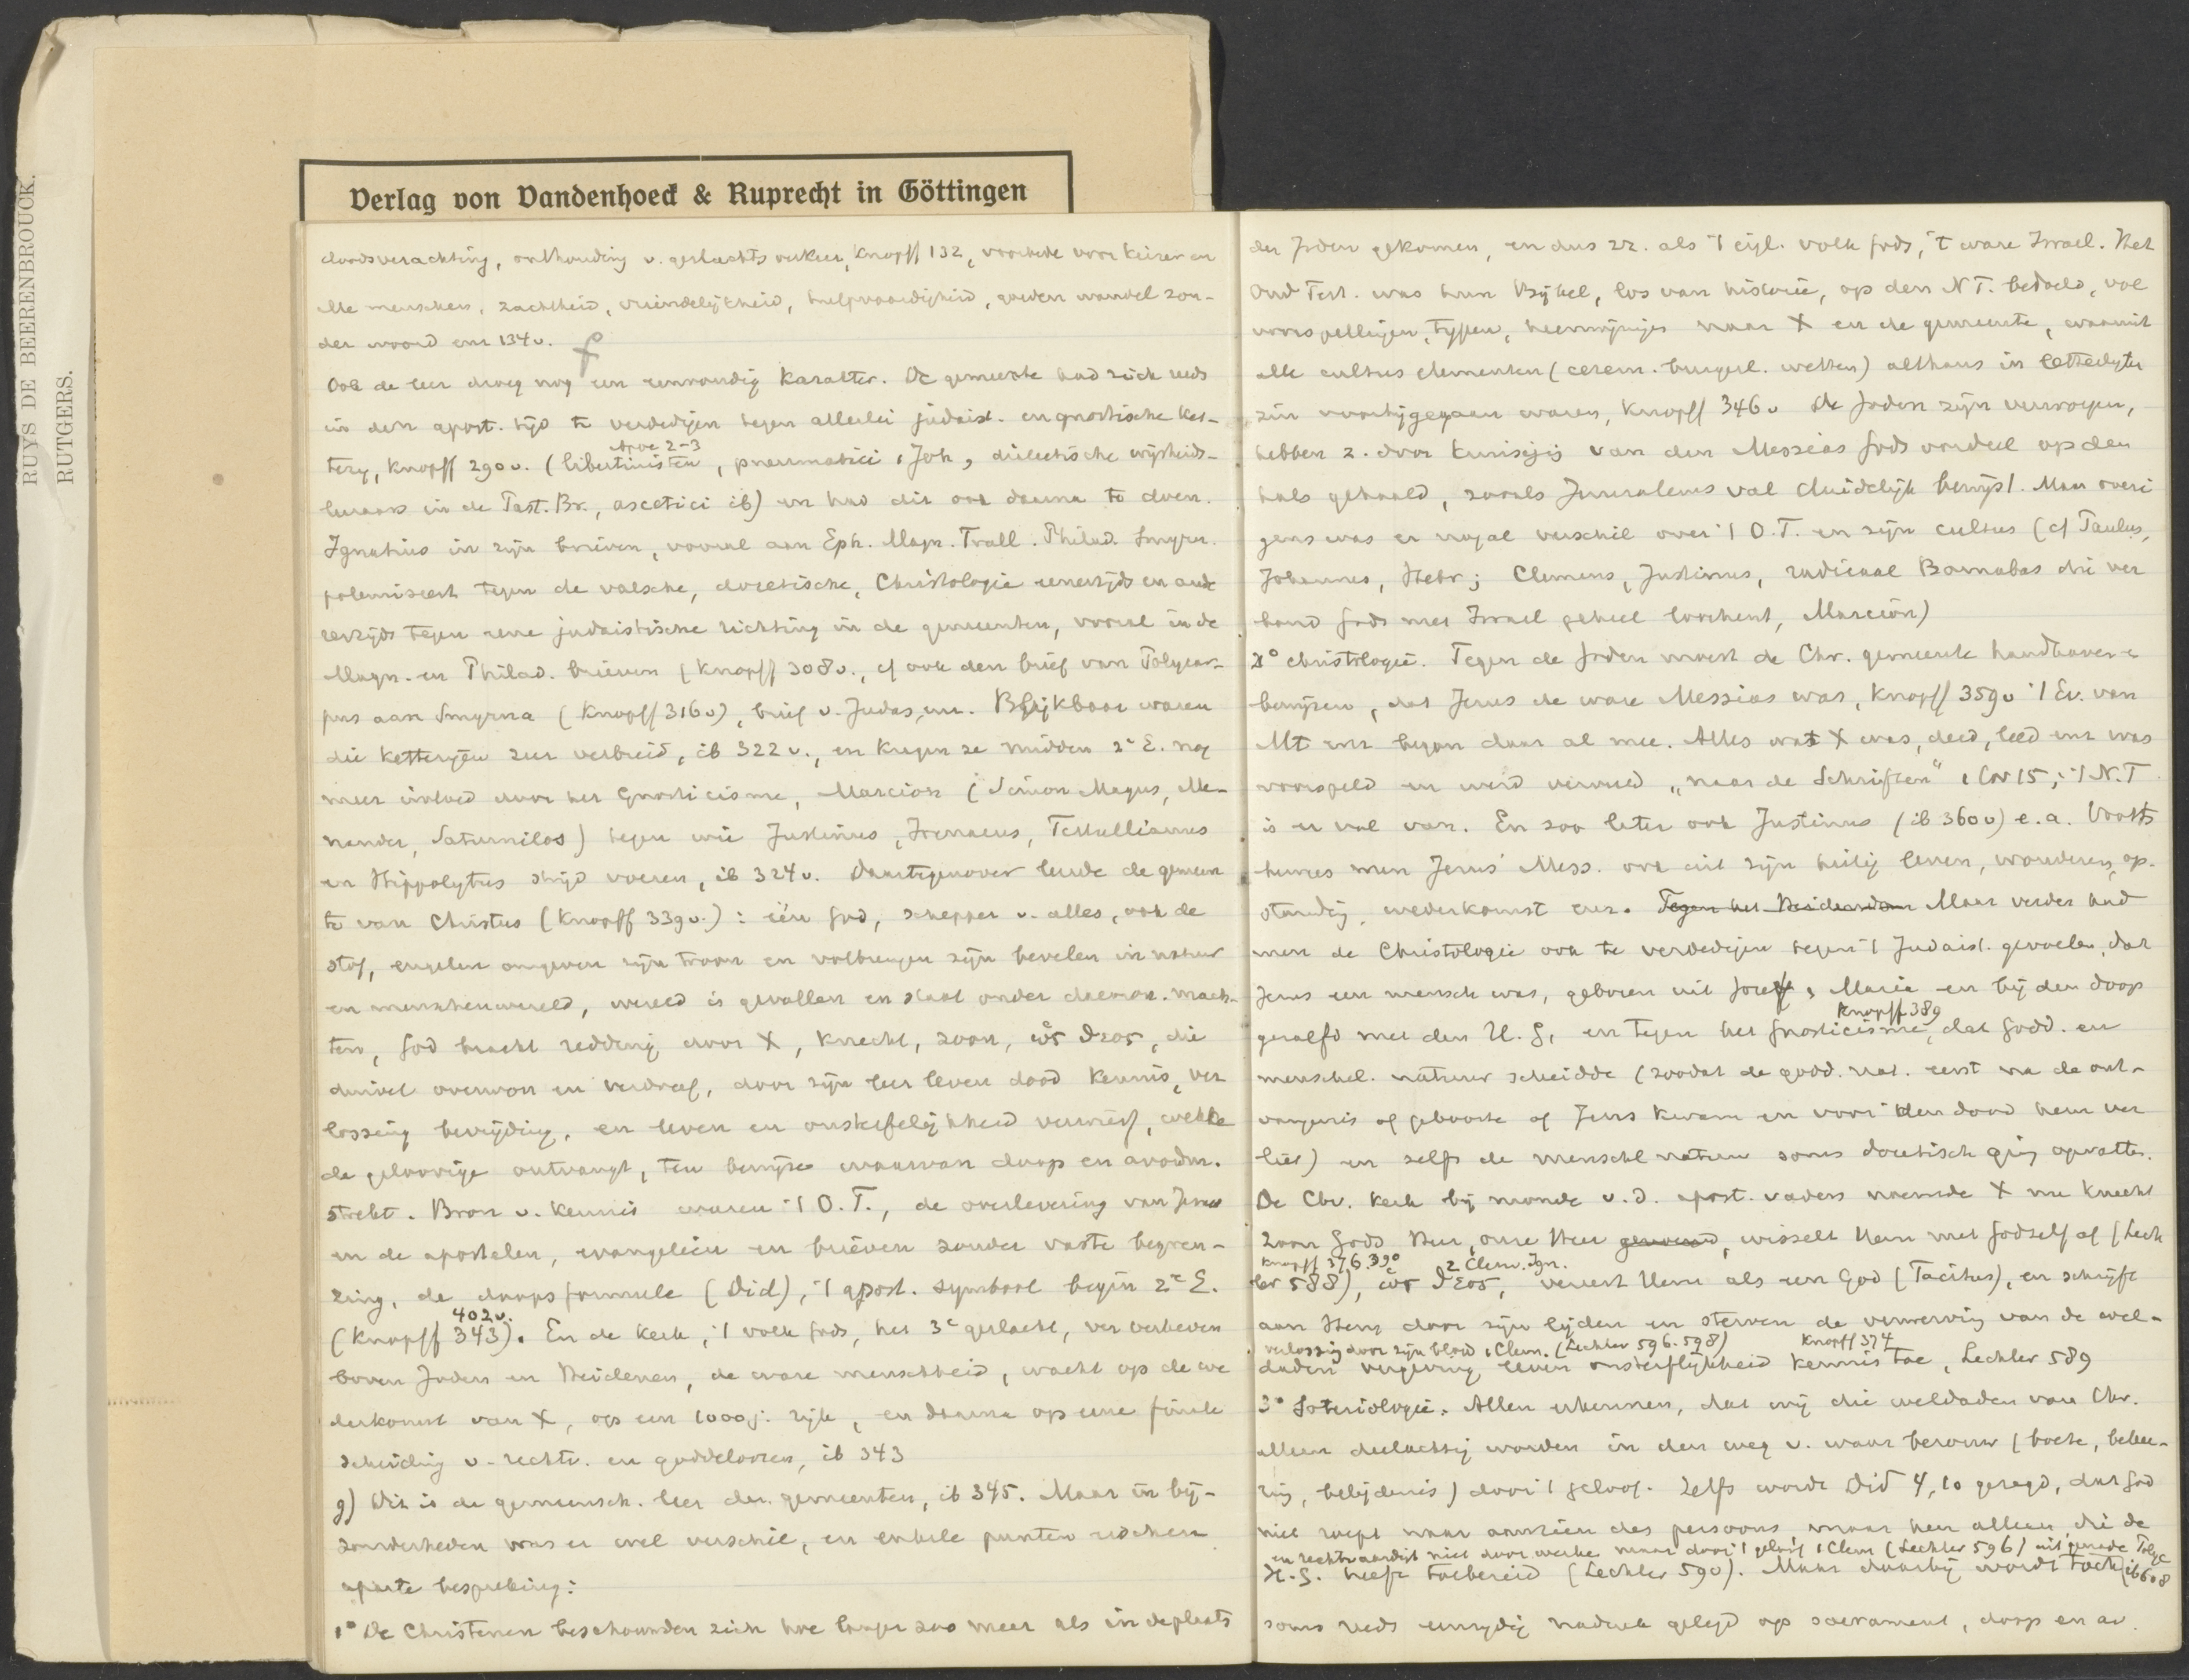 RUYS DE BEERENBROUCK.
RUTGERS.
Verlag von Vandenhoeck & Ruprecht in Göttingen
doodsverachting, onthouding v. geslachtsverkeer, Knopff 132, voorbede voor keizer en
alle menschen, zachtheid, vriendelijkheid, hulpvaardigheid, goeden wandel zon-
der woord enz 134v.
Ook de leer droeg nog een eenvoudig karakter. De gemeente had zich reeds
in den apost. tijd te verdedigen tegen allerlei judaist. en gnostische ket-
Apoc 2-3
terij, Knopff 290v. (libertinisten, pneumatici 1 Joh, diëetische wijsheids-
leeraars in de Past. Br., ascetici ib) en had dit ook daarna te doen.
Ignatius in zijn brieven, vooral aan Eph. Magn. Trall. Philad. Smyrn.
polemiseert tegen de valsche, docetische, Christologie eenerzijds en ande
rerzijds tegen eene judaistische richting in de gemeenten, vooral in de
Magn. en Philad. brieven (Knopff 308v., cf ook den brief van Polycar-
pus aan Smyrna (Knopff 316v), brief v. Judas, enz. Blijkbaar waren
die ketterijen zeer verbreid, ib 322v., en kregen ze midden 2e E. nog
meer invloed door het Gnosticisme, Marcion (Simon Magus, Me-
nander, Saturnilos) tegen wie Justinus, Irenaeus, Tertullianus
en Hippolytus strijd voeren, ib 324v. Daartegenover leerde de gemeen
te van Christus (Knopff 339v.): één God, schepper v. alles, ook de
stof, engelen omgeven zijn troon en volbrengen zijn bevelen in natuur
en menschenwereld, wereld is gevallen en staat onder daemon. mach-
ten, God bracht redding door X, Knecht, zoon, ὡς θεος, die
duivel overwon en verdreef, door zijn leer leven dood kennis, ver
lossing bevrijding, en leven en onsterfelijkheid verwierf, welke
de geloovige ontvangt, ten bewijze waarvan doop en avondm.
strekt. Bron v. kennis waren 't O.T., de overlevering van Jezus
en de apostelen, evangeliën en brieven zonder vaste begren-
zing, de doopsformule (Did), 't apost. symbool begin 2e E.
402v.
(Knopff 343). En de kerk, 't volk Gods, het 3e geslacht, ver verheven
boven Joden en Heidenen, de ware menschheid, wacht op de we
derkomst van X, op een 1000j. rijk, en daarna op eene finale
scheiding v. rechtv. en goddeloozen, ib 343
g) Dit is de gemeensch. leer der gemeenten, ib 345. Maar in bij-
zonderheden was er wel verschil, en enkele punten eischen
aparte bespreking:
1° De Christenen beschouwden zich hoe langer zoo meer als in de plaats
der Joden gekomen, en dus zz. als 't eigl. volk Gods, 't ware Israel. Het
Oud Test. was hun Bijbel, los van historie, op den NT. bedoeld, vol
voorspellingen, typen, heenwijzingen naar X en de gemeente, waarmit
alle cultus elementen (cerem. burgerl. wetten) althans in letterlijken
zin voorbijgegaan waren, Knopff 346v De Joden zijn verworpen,
hebben z. door kruisigig van den Messias Gods oordeel op den
hals gehaald, zooals Jeruzalems val duidelijk bewijst. Maar overi
gens was er nogal verschil over 't O.T. en zijn cultus (cf Paulus,
Johannes, Hebr; Clemens, Justinus, radicaal Barnabas die ver
bond Gods met Israel geheel loochent, Marcion)
2° christologie. Tegen de Joden moest de Chr. gemeente handhaven e
bewijzen, dat Jezus de ware Messias was, Knopff 359v 't Ev. van
Mt enz begon daar al mee. Alles wat X was, deed, leed enz was
voorspeld en werd vervuld „naar de Schriften" 1 Cor 15; 't N.T
is er vol van. En zoo later ook Justinus (ib 360v) e.a. Voorts
bewees men Jezus' Mess. ook uit zijn heilig leven, wonderen, op-
standig, wederkomst enz. Tegen het Heidendom Maar verder had
men de Christologie ook te verdedigen tegen 't Judaist. gevoelen, dat
Jezus een mensch was, geboren uit Jozef, Maria en bij den doop
Knopff 389
gezalfd met den H.G. en tegen het gnosticisme, dat godd. en
menschel. natuur scheidde (zoodat de godd. nat. eerst na de ont-
vangenis of geboorte of Jezus kwam en voor den dood hem ver
liet) en zelfs de menschl natuur soms docetisch ging opvatten.
De Chr. kerk bij monde v.d. apost. vaders noemde X nu knecht
zoon Gods Heer, onze Heer genoemd, wisselt Hem met God zelf af (Lech
Knopff 376.390 2 Clem. Ign.
ler 588), ὡς θεος, vereert Hem als een God (Tacitus), en schrijft
aan Hem door zijn lijden en sterven de verwerving van de wel-
verlossig door zijn bloed 1 Clem. (Lechler 596.598) Knopff 374
daden vergeving leven onsterflijkheid kennis toe, Lechler 589
3° Soteriologie. Allen erkennen, dat wij die weldaden van Chr.
alleen deelachtig worden in den weg v. waar berouw (boete, bekee-
ring, belijdenis) door 't geloof. Zelfs wordt Did 4,10 gezegd, dat God
niet roept naar aanzien des persoons, maar hen alleen, die de
en rechtvaardigt niet door werke maar door 't geloof 1 Clem (Lechler 596) uit genade Polyc
H.G. heeft toebereid (Lechler 590). Maar daarbij wordt toch (ib 608
soms reeds eenzijdig nadruk gelegd op sacrament, doop en av.